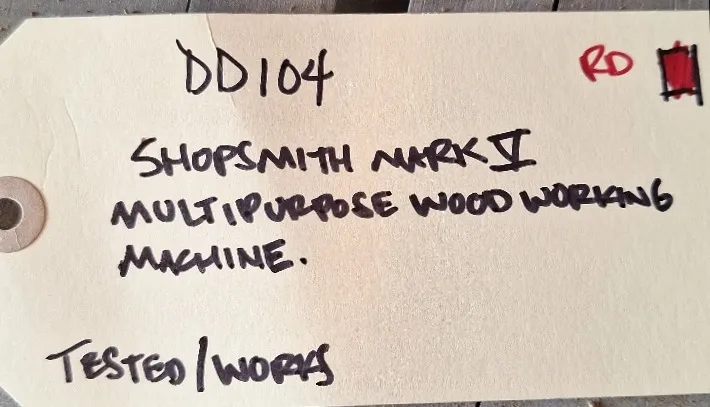 DD104 RD
SHOPSMITH MARK V
MULTIPURPOSE WOODWORKING
MACHINE.
TESTED/WORKS